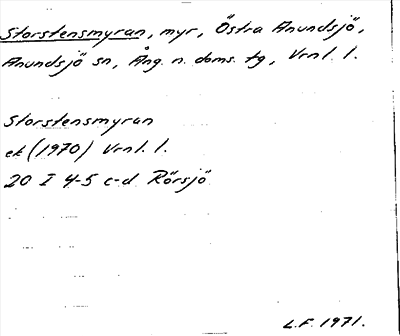 Storstensmyran, myr, Östra Anundsjö,
Anundsjö sn, Ång. n. doms. tg, Vrnl. l.
Storstensmyran
ek (1970) Vrnl. l.
20 I 4-5 c-d Rörsjö
L.F. 1971.